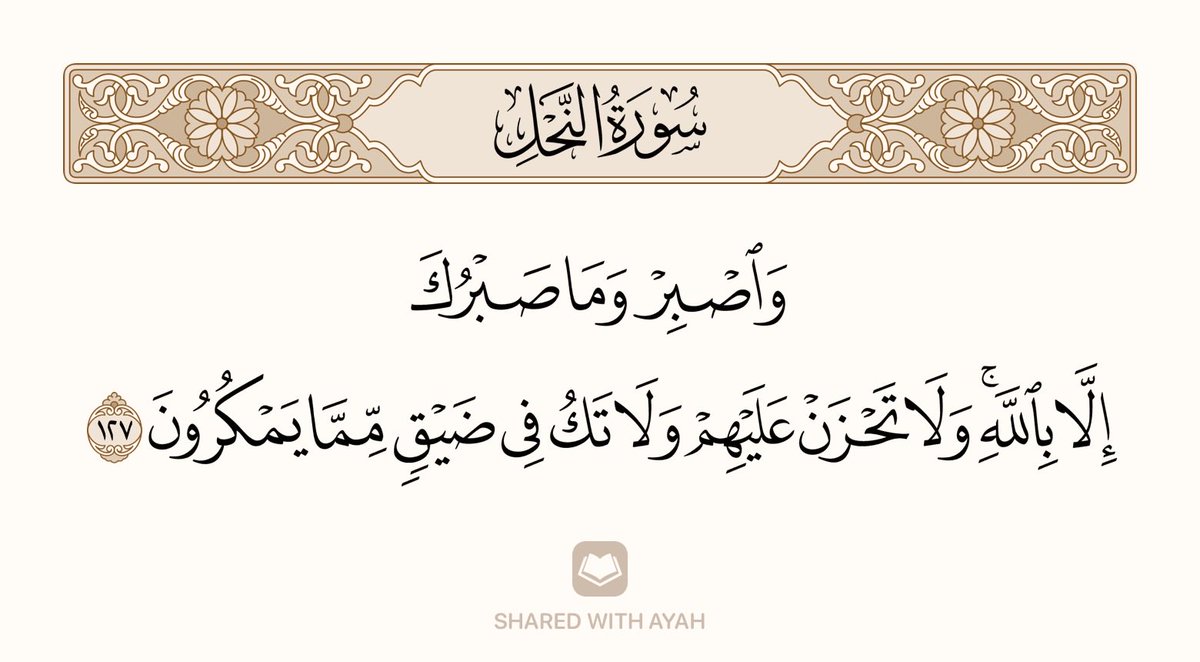 سُورَةُ النَّحۡلِ
وَٱصۡبِرۡ وَمَا صَبۡرُكَ
إِلَّا بِٱللَّهِۚ وَلَا تَحۡزَنۡ عَلَيۡهِمۡ وَلَا تَكُ فِي ضَيۡقٖ مِّمَّا يَمۡكُرُونَ ١٢٧
SHARED WITH AYAH